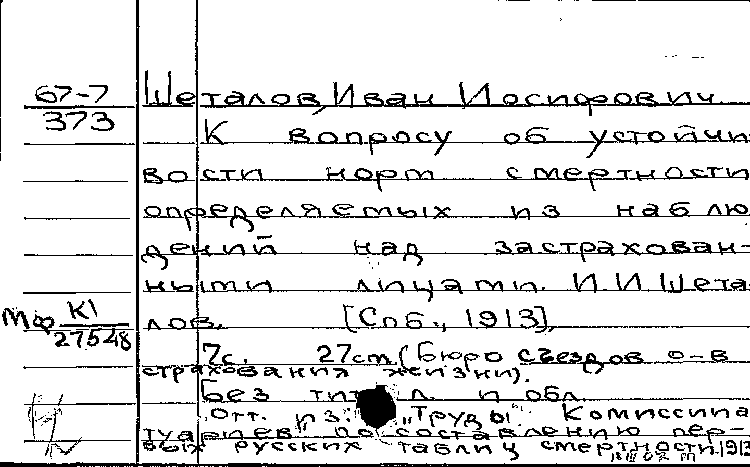 67-7
373
Шеталов, Иван Иосифович
К вопросу об устойчи
вости норм смертности
определяемых из наблю
дений над застрахован-
ными лицами. И.И Шета
лов. [Спб., 1913].
Мф К1
27548
7с. 27cm (Бюро съездов о-в
страхования жизни).
Без тит. л. и обл.
Отт. из: "Труды Комиссии а
туариев по составлению пер-
вых русских таблиц смертности. 1913